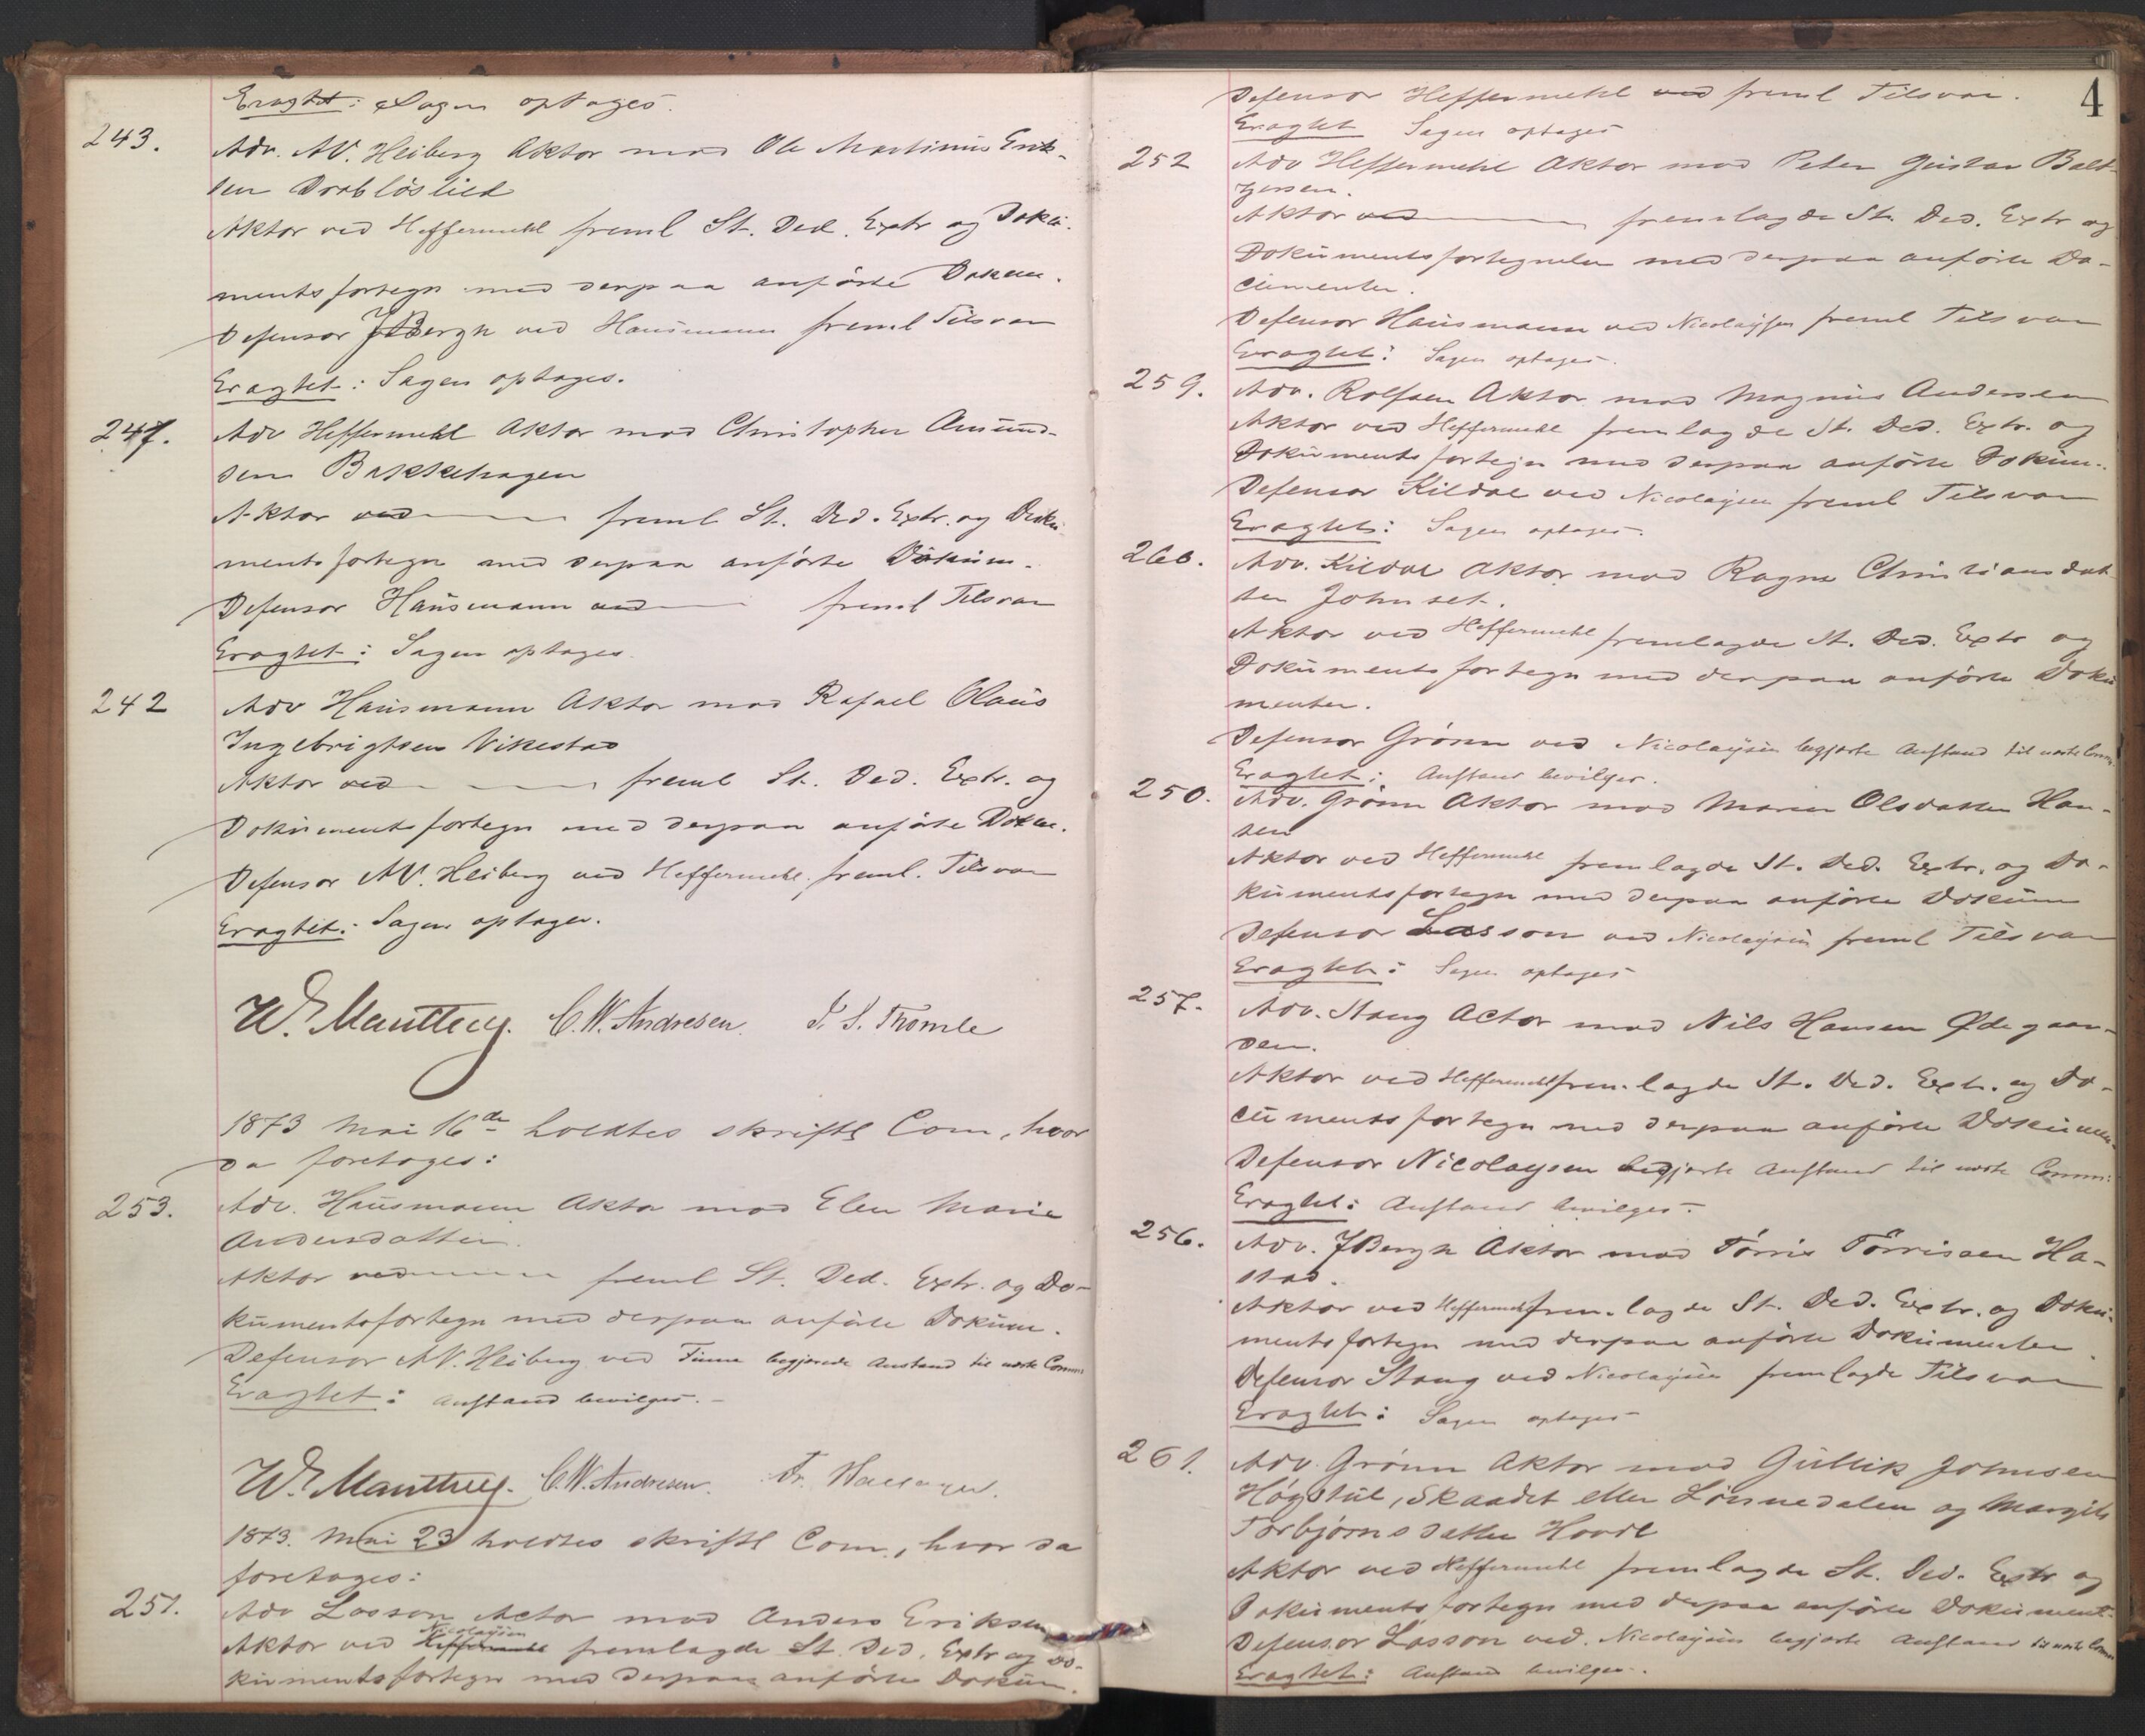 Eragtet: Sagen optages.
243. Adv. AV. Heiberg Aktor mod Ole Martinus Erik-
sen Drabløslid
Aktor ved Heffermehl freml St. Ded. Extr og Doku-
mentsfortegn med derpaa anførte Dokum.
Defensor JBergh ved Hausmann freml Tilsvar
Eragtet: Sagen optages.
247. Adv Heffermehl Aktor mod Christopher Amund-
sen Bakkehagen
Aktor ved freml St. Ded. Extr. og Doku
mentsfortegn med derpaa anførte Dokum.
Defensor Hausmann ved freml Tilsvar
Eragtet: Sagen optages.
242 Adv Hausmann Aktor mod Rafael Olaus
Ingebrigtsen Vikestad
Aktor ved freml St. Ded. Extr. og
Dokumentsfortegn med derpaa anførte Dokum.
Defensor AV. Heiberg ved Heffermehl freml. Tilsvar
Eragtet: Sagen optages.
C.W. Andresen. J. S. Thomle
1873 Mai 16de holdtes skriftl Com, hvor
da foretoges:
253. Adv. Hausmann Aktor mod Elen Marie
Andersdatter.
Aktor ved freml St. Ded. Extr. og Do-
kumentsfortegn med derpaa anførte Dokum.
Defensor AV. Heiberg ved begjærede Anstand til næste Comm
Eragtet: Anstand bevilges.-
C.W. Andresen.
1873. Mai 23 holdtes skriftl Com., hvor da
foretoges:
251. Adv Lasson Actor mod Anders Eriksen
Nicolaysen
Aktor ved Heffermehl fremlagde St. Ded. Extr og Do-
kumentsfortegn med derpaa anførte Dokum.
4
Defensor Heffermehl ved freml Tilsvar.
Eragtet Sagen optages
252 Adv Heffermehl Aktor mod Peter Gustav Balt-
zersen.
Aktor ved fremlagde St. Ded. Extr og
Dokumentsfortegnelse med derpaa anførte Do-
cumenter.
Defensor Hausmann ved Nicolaysen freml Tilsvar
Eragtet: Sagen optages.
259. Adv. Rolfsen Aktor mod Magnus Andersen
Aktor ved Heffermehl fremlagde St. Ded. Extr. og
Dokumentsfortegn med derpaa anførte Dokum.
Defensor Kildal ved Nicolaysen freml Tilsvar
Eragtet: Sagen optages.
260. Adv. Kildal Aktor mod Ragne Christiansdat
ter Johnset.
Aktor ved Heffermehl fremlagde St. Ded. Extr og
Dokumentsfortegn med derpaa anførte Doku
menter.
Defensor Grønn ved Nicolaysen begjærte Anstand til næste Comm.
Eragtet: Anstand bevilges.
250. Adv. Grønn Aktor mod Maren Olsdatter Han-
sen
Aktor ved Heffermehl fremlagde St. Ded. Extr. og Do-
kumentsfortegn med derpaa anførte Dokum
Defensor Lasson ved Nicolaysen freml Tilsvar
Eragtet: Sagen optages
257. Adv. Stang Actor mod Nils Hansen Ødegaar-
den.
Aktor ved Heffermehl fremlagde St. Ded. Extr. og Do-
cumentsfortegn med derpaa anførte Dokumen.
Defensor Nicolaysen begjærte Anstand til næste Comm:
Eragtet: Anstand bevilges.
256. Adv. JBergh Aktor mod Tørris Tørrisen Ha-
stad.
Aktor ved Heffermehl fremlagde St. Ded. Extr. og Doku-
mentsfortegn med derpaa anførte Dokumenter
Defensor Stang ved Nicolaysen fremlagde Tilsvar
Eragtet: Sagen optages
261. Adv. Grønn Aktor mod Gullik Johnsen
Høgstul, Skaadet eller Lønnedalen og Margith
Torbjørnsdatter Hovde
Aktor ved Heffermehl fremlagde St. Ded. Extr og
Dokumentsfortegn med derpaa anførte Dokument.
Defensor Lasson ved. Nicolaysen begjærte Anstand til næste Comm
Eragtet: Anstand bevilges.